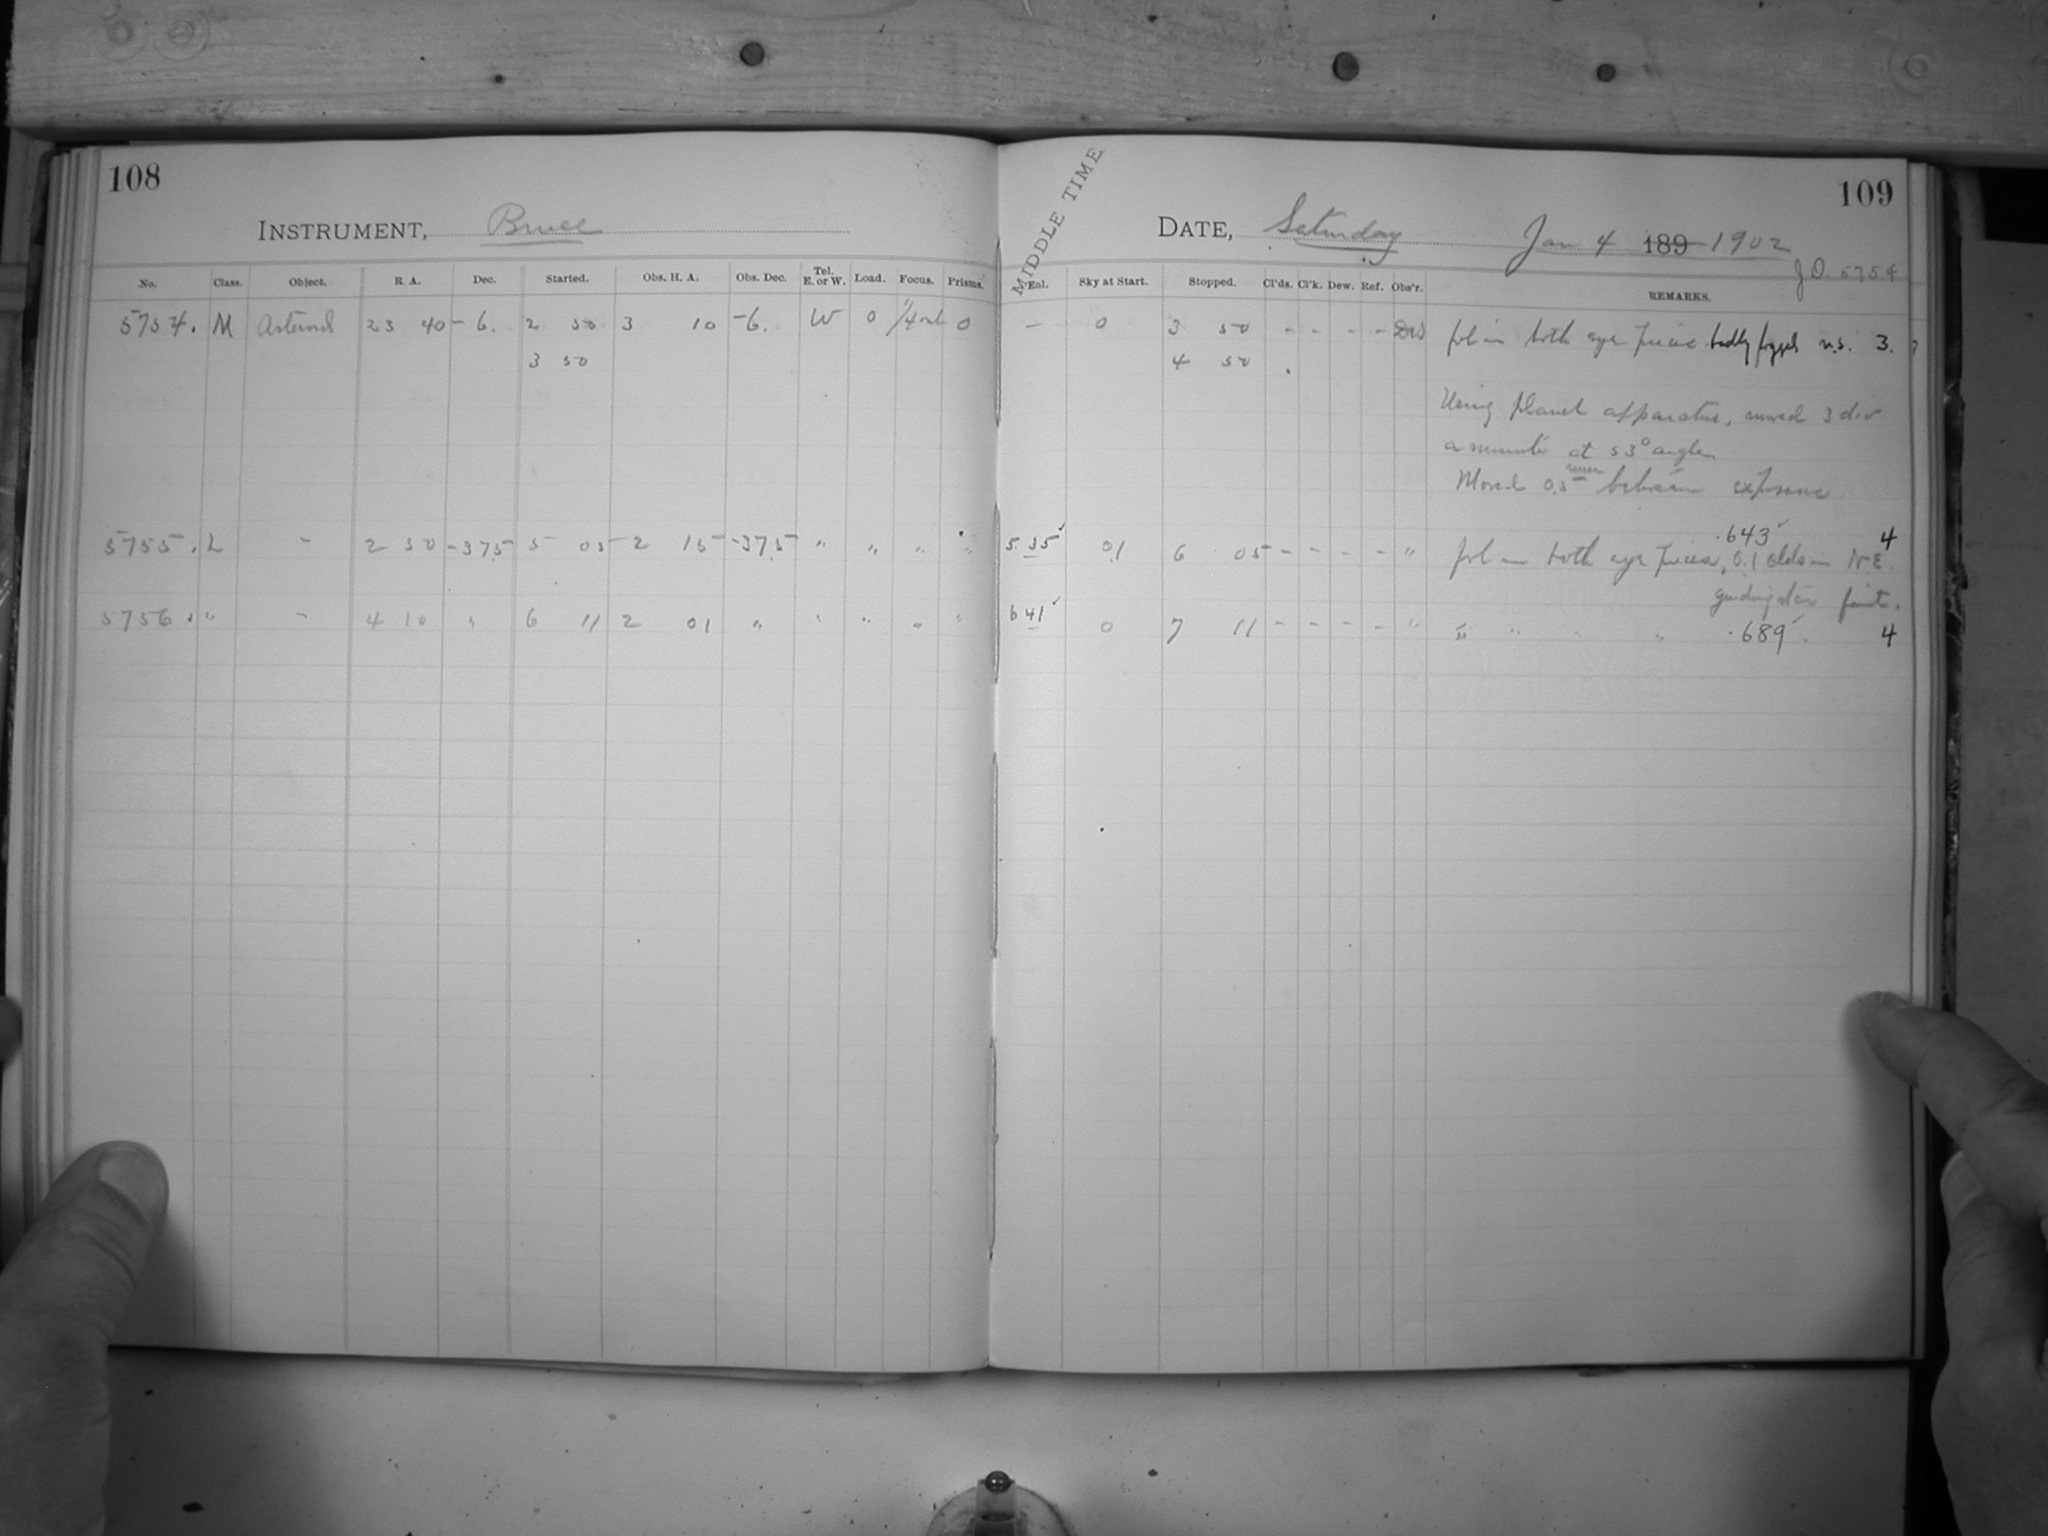 108
INSTRUMENT, Bruce
No. Class. Object. R A. Dec. Started. Obs. H. A. Obs. Dec. Tel. E. or W. Load. Focus. Prisms.
5754. M Asteroid 23 40 - 6. 2 50 3 10 -6. W 0 1/4 out 0
3 50
5755. L - 2 50 -37.5 5 05 2 15 -37.5 " " " "
5756. " - 4 10 " 6 11 2 01 " " " " "
109
MIDDLE TIME
DATE, Saturday Jan 4 189 1902
J.D. 5754
Eal. Sky at Start. Stopped. Cl'ds. Cl'k. Dew. Ref. Obs'r. REMARKS.
- 0 3 50 - - - - fol in both eye piece badly fogged n.s. 3.
4 50
Using planet apparatus, moved 3 div
a minute at 53° angle
Moved 0.5 mm between exposure
5.35 01 6 05 - - - - " .643 4
fol in both eye pieces, 0.1 clds in NE.
guiding star faint.
6 41 0 7 11 - - - - " " " " " .689 4